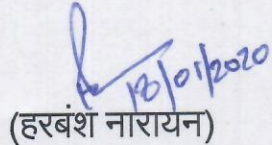 18/01/2020
(हरबंश नारायन)